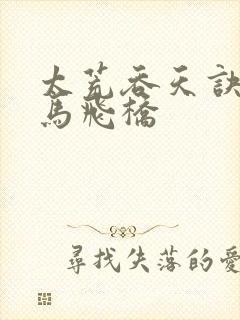 太荒吞天訣
馬飛橋
尋找失落的愛